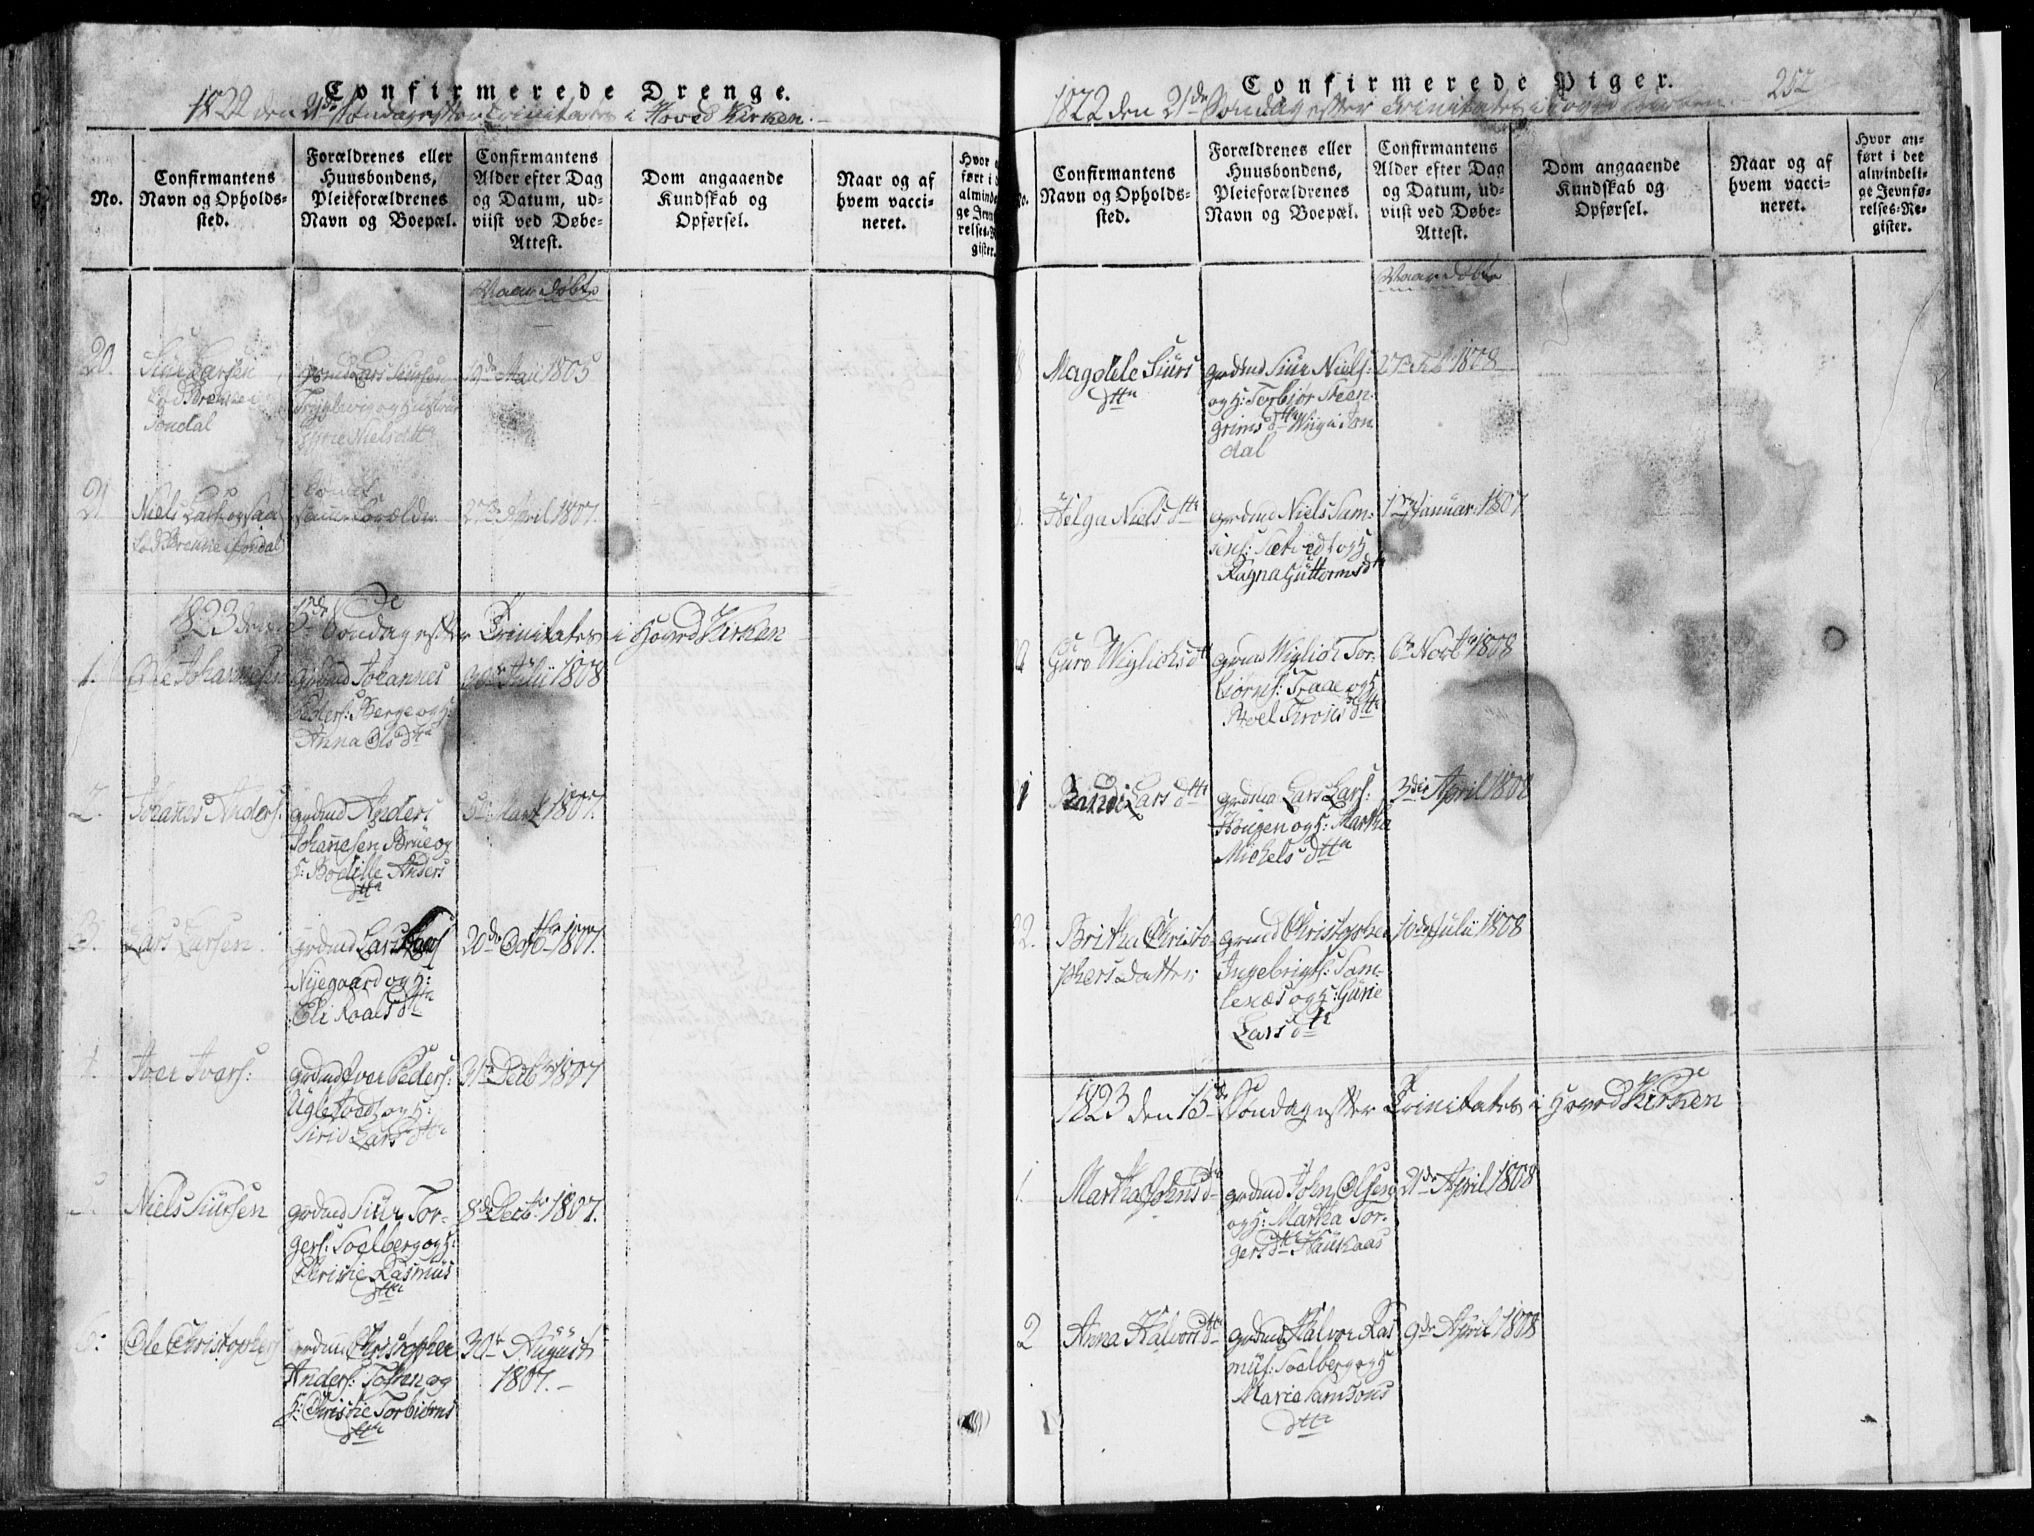 Confirmerede Drenge.
1822 den 21de Søndag efter Trinitates i Hoved Kirken.
No.
Confirmantens
Navn og Opholds-
sted.
Forældrenes eller
Huusbondens,
Pleieforældrenes
Navn og Boepæl.
Confirmantens
Alder efter Dag
og Datum, ud-
viist ved Døbe-
Attest.
Dom angaaende
Kundskab og
Opførsel.
Naar og af
hvem vacci-
neret.
Naar døbt
20.
Siur Larsen
Jondal
Lars Siursen
og Hustrue
Nielsdtr
19de Maii 1805
21
Niels Lars:
Jondal
samme Forældre
27de April 1807.
1823 den 15de Søndag efter Trinitates i Hoved Kirken
1.
Ole Johannesen
grdmd Johannes
Peders: Berge og H:
Anna Ols dtr
30te Julii 1808
2.
Johanes Anders:
grdmd Anders
Johannesen Brue og
H: Bodille Anders
dtr
5te Mart 1807.
3.
Lars Larsen
grdmd Lars Lars
Nyegaard og H:
Eli Roals dtr
20de Octbr 1807.
4.
Iver Ivers:
grdmd Iver Peders:
og H:
Siri Lars dtr
31te Decbr 1807
5.
Niels Siursen
grdmd Siur Tor-
gers: Soelberg og H:
Christie Rasmus
dtr
8de Decbr. 1807.
6.
Ole Christophers
grdmd Christopher
Anders: Tofthn og
H: Christie Torbiørns
dtr
30te August
1807.
Confirmerede Piger.
252
1822 den 21de Søndag efter Trinitates i Hoved Kirken.
Confirmantens
Navn og Opholds-
sted.
Forældrenes eller
Huusbondens,
Pleieforældrenes
Navn og Boepæl.
Confirmantens
Alder efter Dag
og Datum, ud-
viist ved Døbe-
Attest.
Dom angaaende
Kundskab og
Opførsel.
Naar og af
hvem vacci-
neret.
Hvor an-
ført i det
almindeli-
ge Jevnfø-
relses-Re-
gister.
Naar døbt
Magdele Siurs
dtr
grdmd Siur Niels:
og H: Torbiør Steen-
grims dtr Wiig i Jon
dal
27de Feb 1808
Helga Niels dtr
grdmd Niels Sam-
sons: Sætvedt og H
Ragna Guttorms dtr
1ste Januar 1807
Guro Wiglichs dtr
grdmd Wiglich Tor-
biørns: Traae og H
Boel Trons dtr
6te Novbr 1808
Randi Lars dtr
grdmd Lars Lars:
Hougen og H: Martha
Michels dtr
3die April 1808
22.
Britha Christo-
phers datter.
grdmd Christopher
Ingebrigts: Sam-
lenæs og H: Gurie
Lars dtr
10de Julii 1808
1823 den 15de Søndag efter Trinitates i Hoved Kirken
1.
Martha Johns dtr
grdmd John Olsen
og H: Martha Tor-
gers dtr Haukaas
21de April 1808
2
Anna Halvors dtr
grdmd Halvor Ras
mus: Soelberg og H
Marie Samsons
dtr
9de April 1808